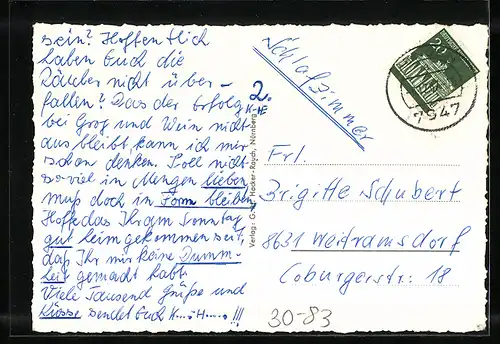 sein? Hoffentlich
haben Euch die
Räuber nicht über-
fallen? Das der Erfolg
bei Grog und Wein nicht
ausbleibt kann ich mir
schon denken. Soll nicht
so viel in Mengen lieben
muß doch in Form bleiben
Hoffe das Ihr am Sonntag
gut heimgekommen seit,
daß Ihr mir keine Dumm-
heit gemacht habt.
Viele Tausend Grüße und
Küsse sendet Euch K...s H....s !!!
2.
K-NE
Schlafzimmer
Verlag: G. Hecker-Rösch, Nürnberg
20
7947
Frl.
Brigitte Schubert
8631 Weitramsdorf
Coburgerstr. 18
30-83